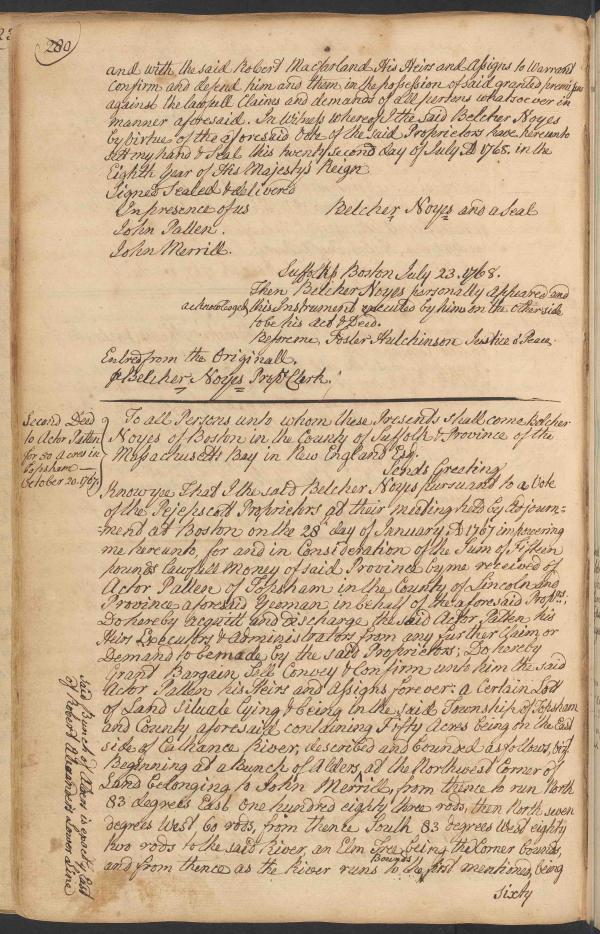 280
and with the said Robert Macfarland His Heirs and Assigns to Warrant
Confirm and defend him and them in the possession of said granted premises
against the lawfull Claims and demands of all persons whatsoever in
manner aforesaid. In Witness whereof I the said Belcher Noyes
by virtue of the aforesaid Vote of the said Proprietors have hereunto
sett my hand & Seal this twenty second day of July AD 1768. in the
Eighth Year of His Majestys Reign
Signed Sealed & delivered
In presence of us Belcher Noyes and a Seal
John Patten.
John Merrill.
Suffolk ss Boston July 23. 1768.
Then Belcher Noyes personally appeared and
acknowledged this Instrument executed by him on the other side
to be his act & Deed.
Before me, Foster Hutchinson Justice o' Peace.
Entred from the Originall.
⅌ Belcher Noyes Propts Clerk.
Second Deed
to Actor Patten
for 50 Acres in
Topsham —
October 20. 1767.
To all Persons unto whom these Presents shall come Belcher
Noyes of Boston in the County of Suffolk & Province of the
Massachusetts Bay in New England Esq.
Sends Greeting
Know yee That I the said Belcher Noyes pursuant to a Vote
of the Pejepscott Proprietors at their meeting held by Adjourn=
=ment at Boston on the 28th day of January AD 1767 impowering
me hereunto, for and in Consideration of the Sum of Fifteen
pounds lawfull Money of said Province by me received of
Actor Patten of Topsham in the County of Lincoln and
Province aforesaid Yeoman in behalf of the aforesaid Proprs.
Do hereby acquitt and discharge the said Actor Patten his
Heirs Executors & Administrators from any further Claim or
Demand to be made by the said Proprietors; Do hereby
Grant Bargain Sell Convey & Confirm unto him the said
Actor Patten his Heirs and Assigns forever: a Certain Lott
of Land situate lying & being in the said Township of Topsham
and County aforesaid containing Fifty Acres being on the East
side of Cathance River, described and bounded as follows, viz.
Beginning at a Bunch of Alders, at the Northwest Corner of
Land belonging to John Merrill, from thence to run North
83 degrees East one hundred eighty three rods, then North seven
degrees West 60 rods, from thence South 83 degrees West eighty
two rods to the said River, an Elm Tree being the Corner bounds,
and from thence as the River runs to the Bounds first mentioned, being
sixty
said Bunch of Alders is exactly East
of Robert Alexanders Lower Line